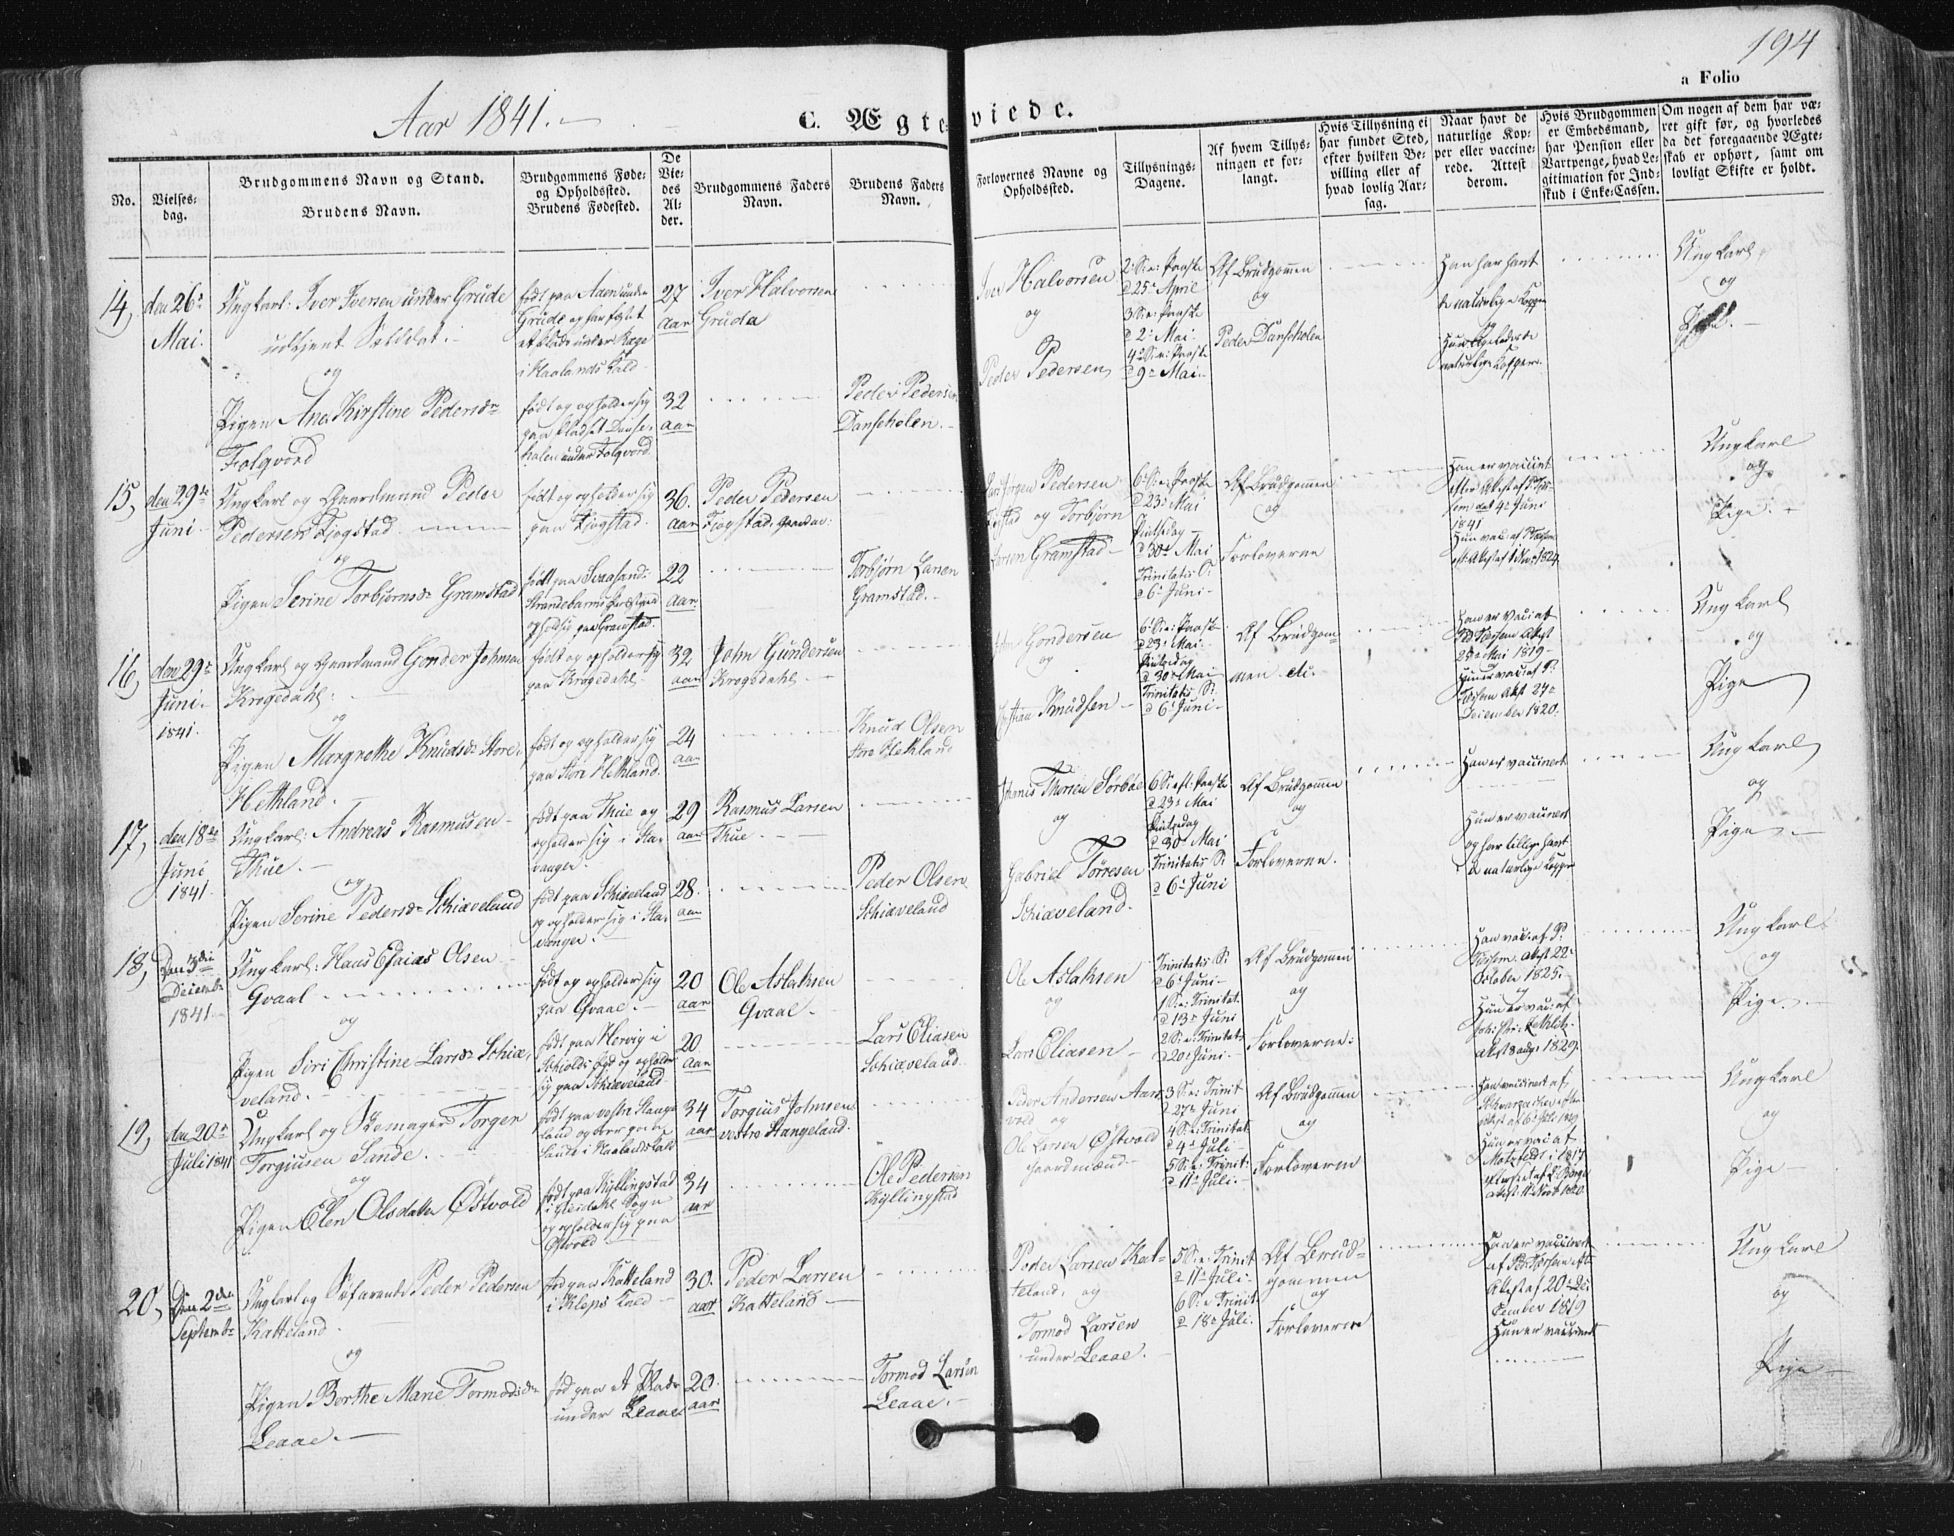 194
a Folio
Aar 1841.
C. Ægteviede.
No.
Vielses-
dag.
Brudgommens Navn og Stand.
Brudens Navn.
Brudgommens Føde-
og Opholdssted.
Brudens Fødested.
De
Vie-
des
Al-
der.
Brudgommens Faders
Navn.
Brudens Faders
Navn.
Forlovernes Navne og
Opholdssted.
Tillysnings-
Dagene.
Af hvem Tillys-
ningen er for-
langt.
Hvis Tillysning ei
har fundet Sted,
efter hvilken Be-
villing eller af
hvad lovlig Aar-
sag.
Naar havt de
naturlige Kop-
per eller vaccine-
rede. Attest
derom.
Hvis Brudgommen
er Embedsmand,
har Pension eller
Vartpenge, hvad Le-
gitimation for Ind-
skud i Enke-Cassen.
Om nogen af dem har væ-
ret gift før, og hvorledes
da det foregaaende Ægte-
skab er ophørt, samt om
lovligt Skifte er holdt.
14,
den 26de
Mai.
Ungkarl: Iver Iversen under Grude
udtjent Soldat.
og
Pigen Ana Kirstine Pedersdr
Folqvord
født paa Aaen under
Grude
i Haalands Kald
født og opholder sig
paa Pladset Danse-
holen under Folqvord
27
Aar
32
aar
Iver Halvorsen
Gruda
Peder Pedersen
Danseholen.
Iver Halvorsen
og
Peder Pedersen
2: S: e: Paaske
d 25de April
3 S: e: Paaske
d 2: Mai
4: S: e: Paaske
d 9de Mai
Af Brudgommen
og
Peder Danseholen
Han har havt
de naturlige Kopper
Hun ligeledes de
naturlige Kopper
Ungkarl
og
Pige.
15,
den 29de
Juni
Ungkarl og Gaardmand Peder
Pedersen Fjogstad
og
Pigen Serine Torbjørnsdr Gramstad
født og opholder sig
paa Fjogstad.
født paa Svaasand
Strandebarms
opholdsig paa Gramstad.
36.
aar
22
aar
Peder Pedersen
Fjogstad, Gaardm:
Torbjørn Larsen
Gramstad.
Lars Jørgen Pedersen
Fjogstad og Torbjørn
Larsen Gramstad
6: S: e: Paaske
d 23de Mai
Pintsedag
d 30de Mai
Trinitatis S:
d 6te Juni
Af Brudgommen
og
Forloverne
Han er vaccinet
efter Attest af
4de Juni
1841
Hun vac: af
Ungkarl
og
Pige.
16,
den 29de
Juni
1841.
Ungkarl og Gaardmand Gonder Johnsen
Krogedahl:
og
Pigen Margrethe Knudsdr Store-
Hethland.
født og opholder sig
paa Krogedahl
født og opholder sig
paa Store Hethland.
32
aar
24
aar
John Gundersen
Krogedahl
Knud Olsen
Store Hethland
John Gondersen
og
Christian Knudsen
6: S: e: Paaske
d 23de Mai
Pintsedag
d 30de Mai
Trinitatis S:
d 6te Juni
Af Brudgom-
men etc.
Han er vac: af
28de Mai 1819
Hun er vac: af P:
Attest 27de
December 1820.
Ungkarl
og
Pige
17,
den 18de
Juni
1841.
Ungkarl: Andreas Rasmusen
Thue.
og
Pigen Serine Pedersdr Schiæveland
født paa Thue og
opholder sig i Sta-
vanger.
født paa Schiæveland
og opholder sig i Sta-
vanger.
29
aar
28.
aar
Rasmus Larsen
Thue.
Peder Olsen
Schiæveland
Thorsen Sørbøe
og
Gabriel Tørresen
Schiæveland.
6 S: eft: Paaske
d 23de Mai
Pintsedag
d 30 Mai
Trinitatis S:
d 6te Juni
Af Brudgommen
og
Forloverne.
Han er vaccinert
Hun er vaccinert
og har tillige havt
de naturlige Kopper
Ungkarl
og
Pige
18,
Den 3die
December
1841.
Ungkarl: Hans Esaias Olsen
Gvaal
og
Pigen Siri Christine Larsdr Schiæ-
veland.
født og opholder sig
paa Gvaal.
født paa Hervig i
Schiolds Sogn og opholder
sig paa Schiæveland
20
aar
20
aar
Ole Aslaksen
Gvaal.
Lars Eliasen
Schiæveland.
Ole Aslaksen
og
Lars Eliasen
Trinitatis S:
d 6te Juni
1 S: e: Trinitat:
d 13de Juni
2 S: e: Trinitat:
d 20de Juni
Af Brudgommen
og
Forloverne:
Han vac: af P:
Attest 22de
October 1825.
og
Hun er vac: af
Attest 8 aug: 1829.
Ungkarl
og
Pige.
19,
den 20de
Juli 1841
Ungkarl og Skomager Torger
Torgiusen Sande.
og
Pigen Elen Olsdatter Østvold
født paa vestre Stange-
land og er paa
Sande i Haalands Kald
født paa Kyllingstad
Sogn
og opholder sig paa
Østvold
34
aar
34
aar
Torgius Johnsen
vestre Stangeland.
Ole Pedersen
Kyllingstad
Peder Andersen Aars-
vold og
Ole Larsen Østvold
Gaardmænd
3 S: e: Trinit
d 27de Juni
4 S: e: Trinitat:
d 4de Juli
5 S: e: Trinit:
d 11te Juli.
Af Brudgommen
og
Forloverne
Han vaccinert af
Hun er vac: af
i 1817
Ungkarl
og
Pige
20,
Den 2den
Septembr
Ungkarl og Søfarende Peder Pedersen
Katteland.
og
Pigen Berthe Marie Tormodsdr
Leaae.
fød paa Katteland
i Kleps Kald
fød paa et Plads
under Leaae
30.
aar
20.
aar
Peder Larsen
Katteland
Tormod Larsen
Leaae.
Peder Larsen Kat-
teland, og
Tormod Larsen
under Leaae.
5 S: e: Trinit
d 11te Juli
6 S: e: Trinit
d 18de Juli.
Af Brud-
gommen
og
Forloverne
Han er vaccinert
Attest af 20de De-
cember 1819
Hun er vaccinert
Ungkarl
og
Pige